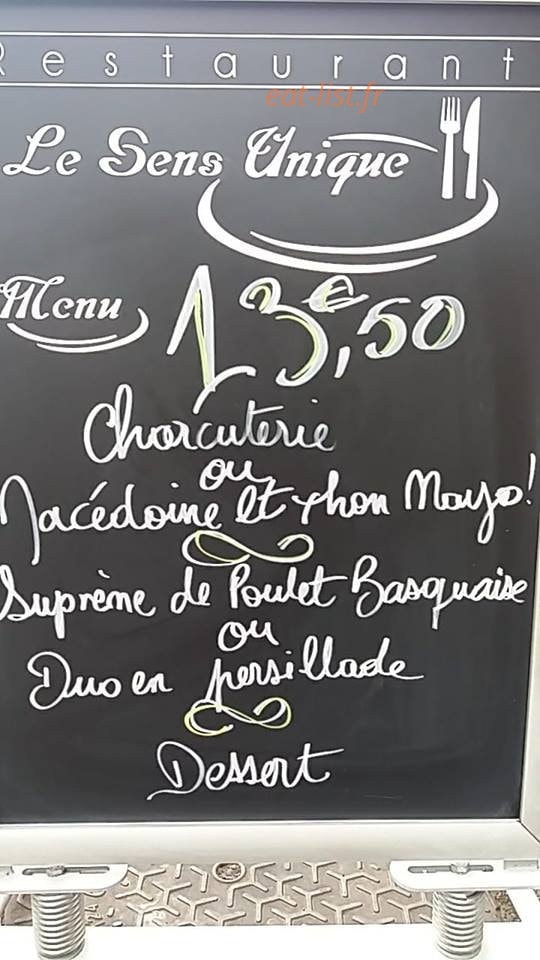 Restaurant
eat-list.fr
Le Sens Unique
Menu 13€,50
Charcuterie
ou
Macédoine et thon Mayo!
Suprème de Poulet Basquaise
ou
Duo en persillade
Dessert